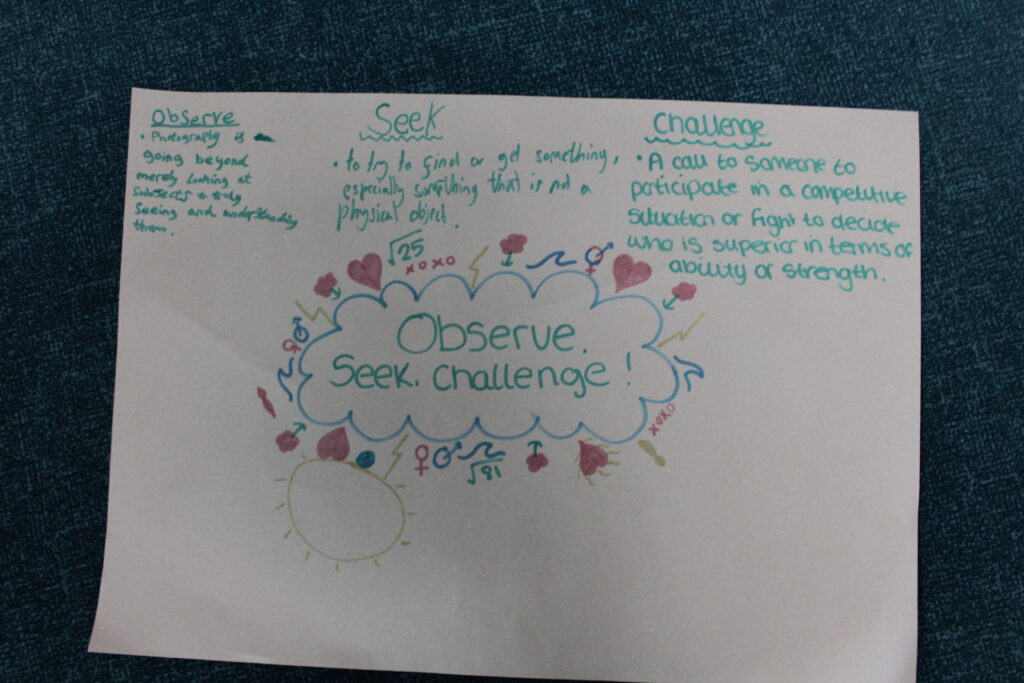 Observe
• Photography is
going beyond
merely looking at
subjects & truly
seeing and understanding
them.
Seek
• to try to find or get something,
especially something that is not a
physical object.
Challenge
• A call to someone to
participate in a competitive
situation or fight to decide
who is superior in terms of
ability or strength.
√25
xoxo
Observe.
Seek. Challenge!
xoxo
√81